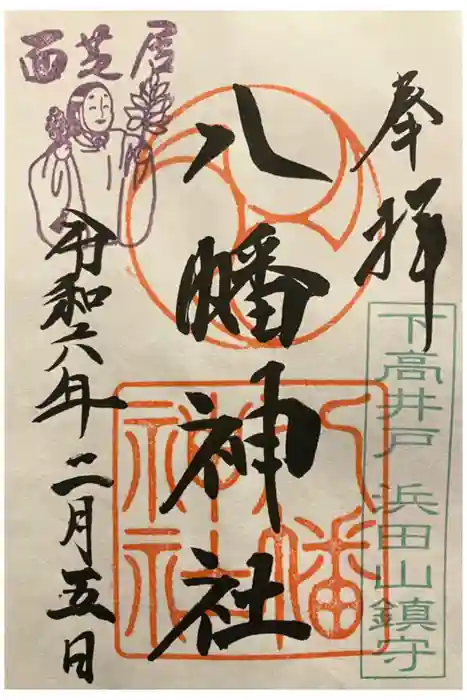 奉拝
下高井戸 浜田山鎮守
八幡神社
八幡神社
面芝居
令和六年二月五日